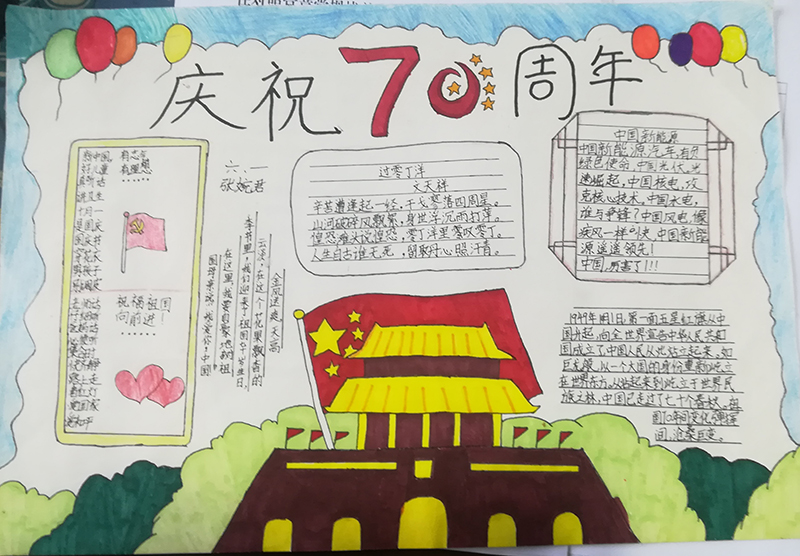 庆祝70周年
新中国 有志气
好儿童 有理想
......
讲卫生
十月一
是国庆
国庆节
穿花衣
男孩子
祝福祖国
向前进！
......
六、一
张婉君
金风送爽，天高
云淡，在这个花果飘香的
季节里，我们迎来了祖国70岁生日。
在这里，我要自豪地对祖
国母亲说：我爱你！中国
过零丁洋
文天祥
辛苦遭逢起一经，干戈寥落四周星。
山河破碎风飘絮，身世浮沉雨打萍。
惶恐滩头说惶恐，零丁洋里叹零丁。
人生自古谁无死，留取丹心照汗青。
中国新能源
中国新能源汽车有负
绿色使命，中国光伏，迅
速崛起，中国核电，攻
克核心技术，中国水电，
谁与争锋？中国风电，像
疾风一样叫快，中国新能
源遥遥领先！
中国，厉害了!!!
1949年10月1日，第一面五星红旗从中
国升起，向全世界宣告中华人民共和
国成立了中国人民从此站立起来，如
巨龙般，以一个大国的身份重新屹立
在世界东方，从站起来到屹立于世界民
族之林，中国已走过了七十个春秋，祖
国70年间变化
间，沧桑巨变。